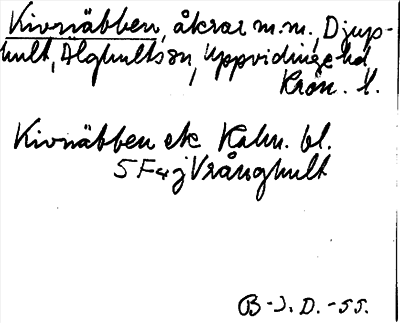 Kivnäbben, åkrar m.m., Djup-
hult, Älghults sn, Uppvidinge hd,
Kron. l.
Kivnäbben ek Kahn. bl.
5 F 4 j Vrånghult
B-J. D. -55.